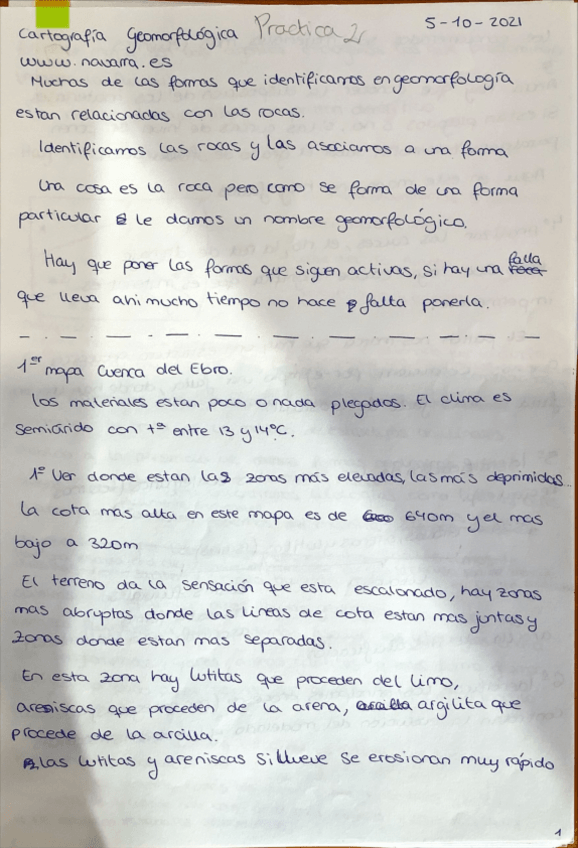 Cartografía Geomorfológica Practica 2 5-10-2021
www.navarra.es
Muchas de las formas que identificamos en geomorfología
estan relacionadas con las rocas.
Identificamos las rocas y las asociamos a una forma
Una cosa es la roca pero como se forma de una forma
particular le damos un nombre geomorfológico.
Hay que poner las formas que siguen activas, si hay una falla
que lleva ahi mucho tiempo no hace falta ponerla.
1er mapa Cuenca del Ebro.
Los materiales estan poco o nada plegados. El clima es
semiárido con tª entre 13 y 14ºC.
1º Ver donde estan las zonas más elevadas, las más deprimidas
La cota mas alta en este mapa es de 640m y el mas
bajo a 320m
El terreno da la sensación que esta escalonado, hay zonas
mas abruptas donde las lineas de cota estan mas juntas y
zonas donde estan mas separadas.
En esta zona hay lutitas que proceden del limo,
areniscas que proceden de la arena, argilita que
procede de la arcilla.
las lutitas y areniscas si llueve se erosionan muy rápido
1